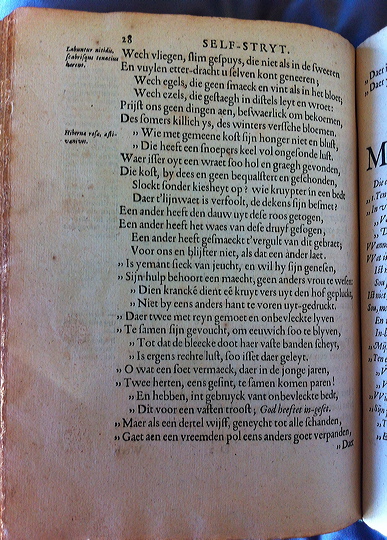 28
SELF-STRYT.
Labuntur nitidis, scabrisque tenacius haerent.
Wech vliegen, slim gespuys, die niet als in de sweeren
En vuylen etter-dracht u selven kont geneeren;
Wech egels, die geen smaeck en vint als in het bloet,
Wech ezels, die gestaegh in distels leyt en wroet:
Prijst ons geen dingen aen, beswaerlick om bekoemen,
Des somers killich ys, des winters versche bloemen.
Hiberna rosa, aestivanives.
„ Wie met gemeene kost sijn honger niet en blust,
„ Die heeft een snoepers keel vol ongesonde lust.
Waer isser oyt een wraet soo hol en graegh gevonden,
Die kost, by dees en geen bequalstert en geschonden,
Slockt sonder kiesheyt op? wie kruypter in een bedt
Daer t'lijnwaet is verfoolt, de dekens sijn besmet?
Een ander heeft den dauw uyt dese roos getogen,
Een ander heeft het waes van dese druyf gesogen,
Een ander heeft gesmaeckt t'vergult van dit gebraet;
Voor ons en blijfter niet, als dat een ander laet.
„ Is yemant sieck van jeucht, en wil hy sijn genesen,
„ Sijn hulp behoort een maecht, geen anders vrou te wesen:
„ Dien krancke dient een kruyt vers uyt den hof gepluckt,
„ Niet by eens anders hant te voren uyt-gedruckt.
„ Daer twee met reyn gemoet en onbevleckte lyven
„ Te samen sijn gevoucht, om eeuwich soo te blyven,
„ Tot dat de bleecke doot haer vaste banden scheyt,
„ Is ergens rechte lust, soo isset daer geleyt.
„ O wat een soet vermaeck, daer in de jonge jaren,
„ Twee herten, eens gesint, te samen komen paren!
„ En hebben, int gebruyck vant onbevleckte bedt,
„ Dit voor een vasten troost; God heeftet in-geset.
„ Maer als een dertel wijff, geneycht tot alle schanden,
„ Gaet aen een vreemden pol eens anders goet verpanden,
„ Daer